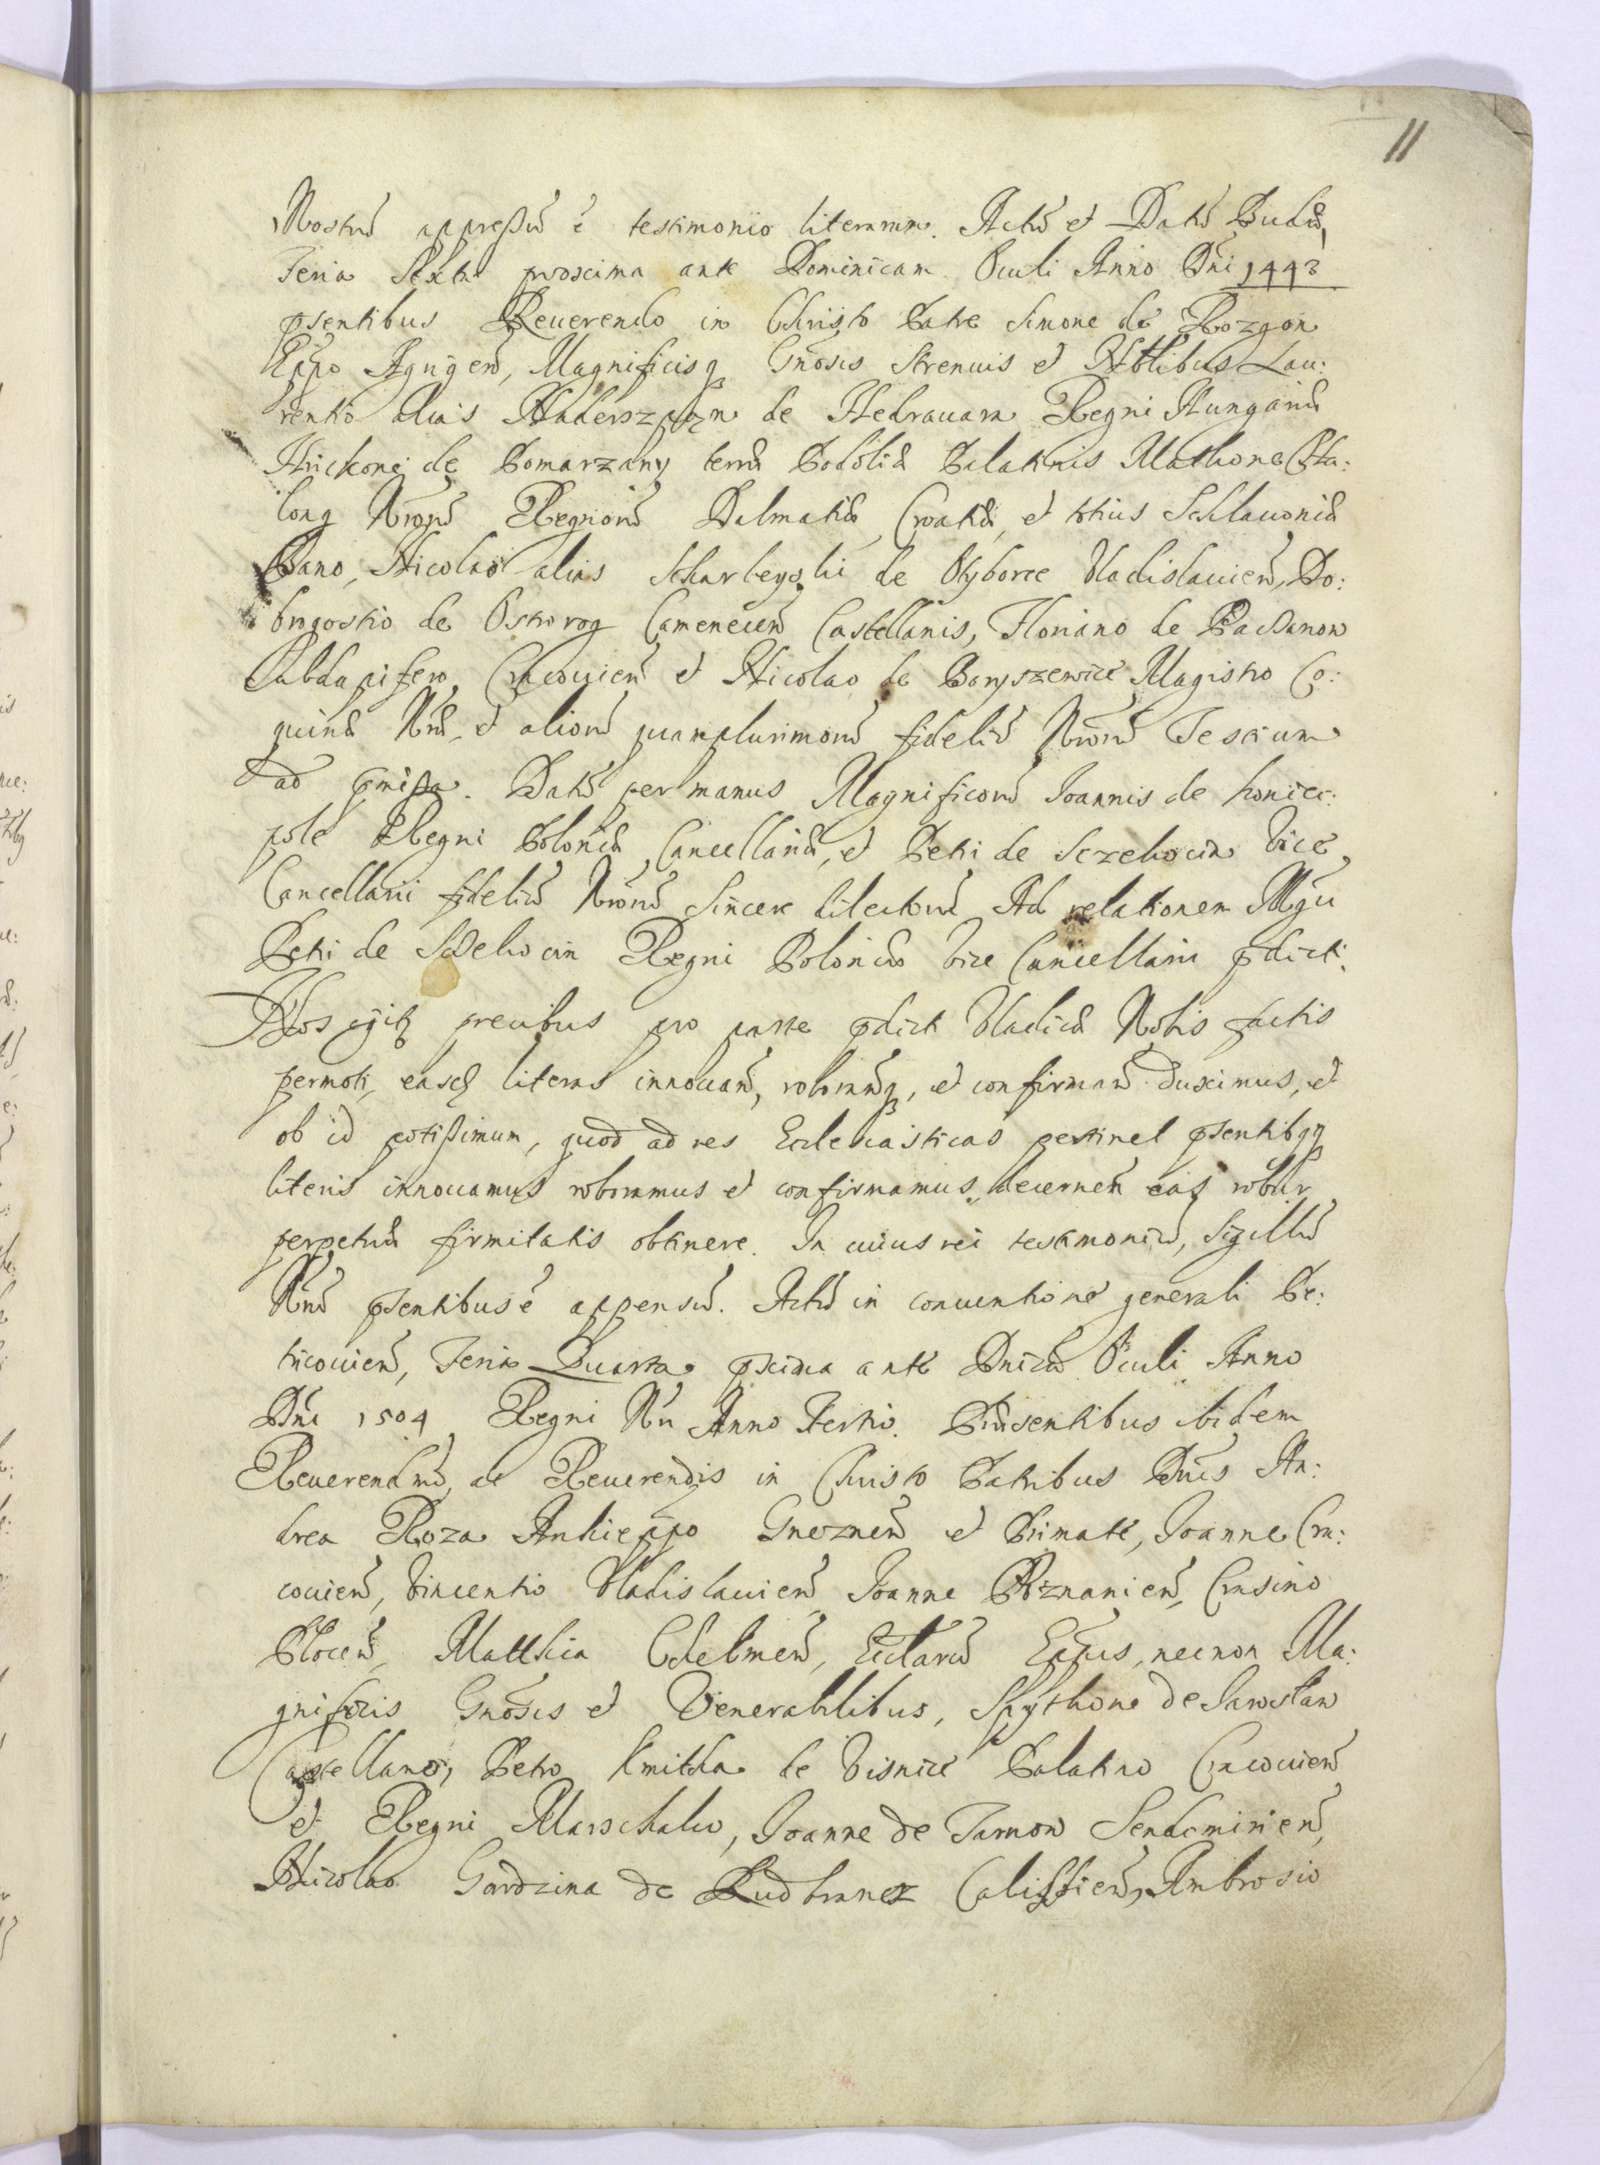 11
Nostrū appressū ē testimonio literarum. Actū et Datū Budæ,
Feria Sexta proxima ante Dominicam Oculi Anno Dñi 1443
pñsentibus Reuerendo in Christo Patre Simone de Rozgon
Eppo Agrigeñ, Magnificisq Gñosis Strenuis et Nobilibus Lau:
rentio alias de Hedrauara Regni Hungariæ
Hrickone de Pomarzany terræ Podoliæ Palatinis Mathone
Nrorū Regnorū Dalmatiæ Croatiæ, et totius Schlauoniæ
Bano, Nicolao alias Scharleyski de Vladislauieñ, Do:
brogostio de Ostrorog Cameneceñ Castellanis, Floriano de Pacanow
Subdapifero Cracouieñ et Nicolao de Boryszewice Magistro Co:
quinæ Nræ, et aliorū quamplurimorū fideliū Nrorū Testium
ad pmissa. Datū per manus Magnificorū Joannis de Koniec:
pole Regni Poloniæ Cancellarii, et Petri de Sczekocin Vice
Cancellarii fideliū Nrorū Sincere dilectorū Ad relationem Mgci
Petri de Scekocin Regni Poloniæ Vice Cancellarii pdicti.
Nos igitq precibus pro parte pdicti Vladicæ Nobis factis
permoti, easdq literas innouand, roborandq, et confirmand duximus, et
ob id potissimum, quod ad res Ecclesiasticas pertinet psentibqq
literis innouamus roboramus et confirmamus, decerneñ eas robur
perpetuæ firmitatis obtinere. In cuius rei testimoniū, Sigillū
Nrū psentibus ē appensū. Actū in conuentione generali Pe:
tricouieñ, Feria Quarta pxima ante Dnicā Oculi Anno
Dñi 1504 Regni Nri Anno Tertio. Præsentibus ibidem
Reuerendmo, ac Reuerendis in Christo Patribus Dñis An:
drea Roza Archieppo Gnezneñ et Primate, Joanne Cra:
couieñ, Vincentio Vladislauieñ, Joanne Poznanieñ, Erasmo
Ploceñ, Matthia Chelmeñ, Eccliarū Eppis, necnon Ma:
gnificis Gñosis et Venerabilibus, Spythone de Jaroslaw
Castellano, Petro Kmitha de Visnice Palatino Cracouieñ
et Regni Marschalco, Joanne de Tarnow Sendomirieñ,
Nicolao Gardzina de Ludbrancz Calissieñ, Ambrosio